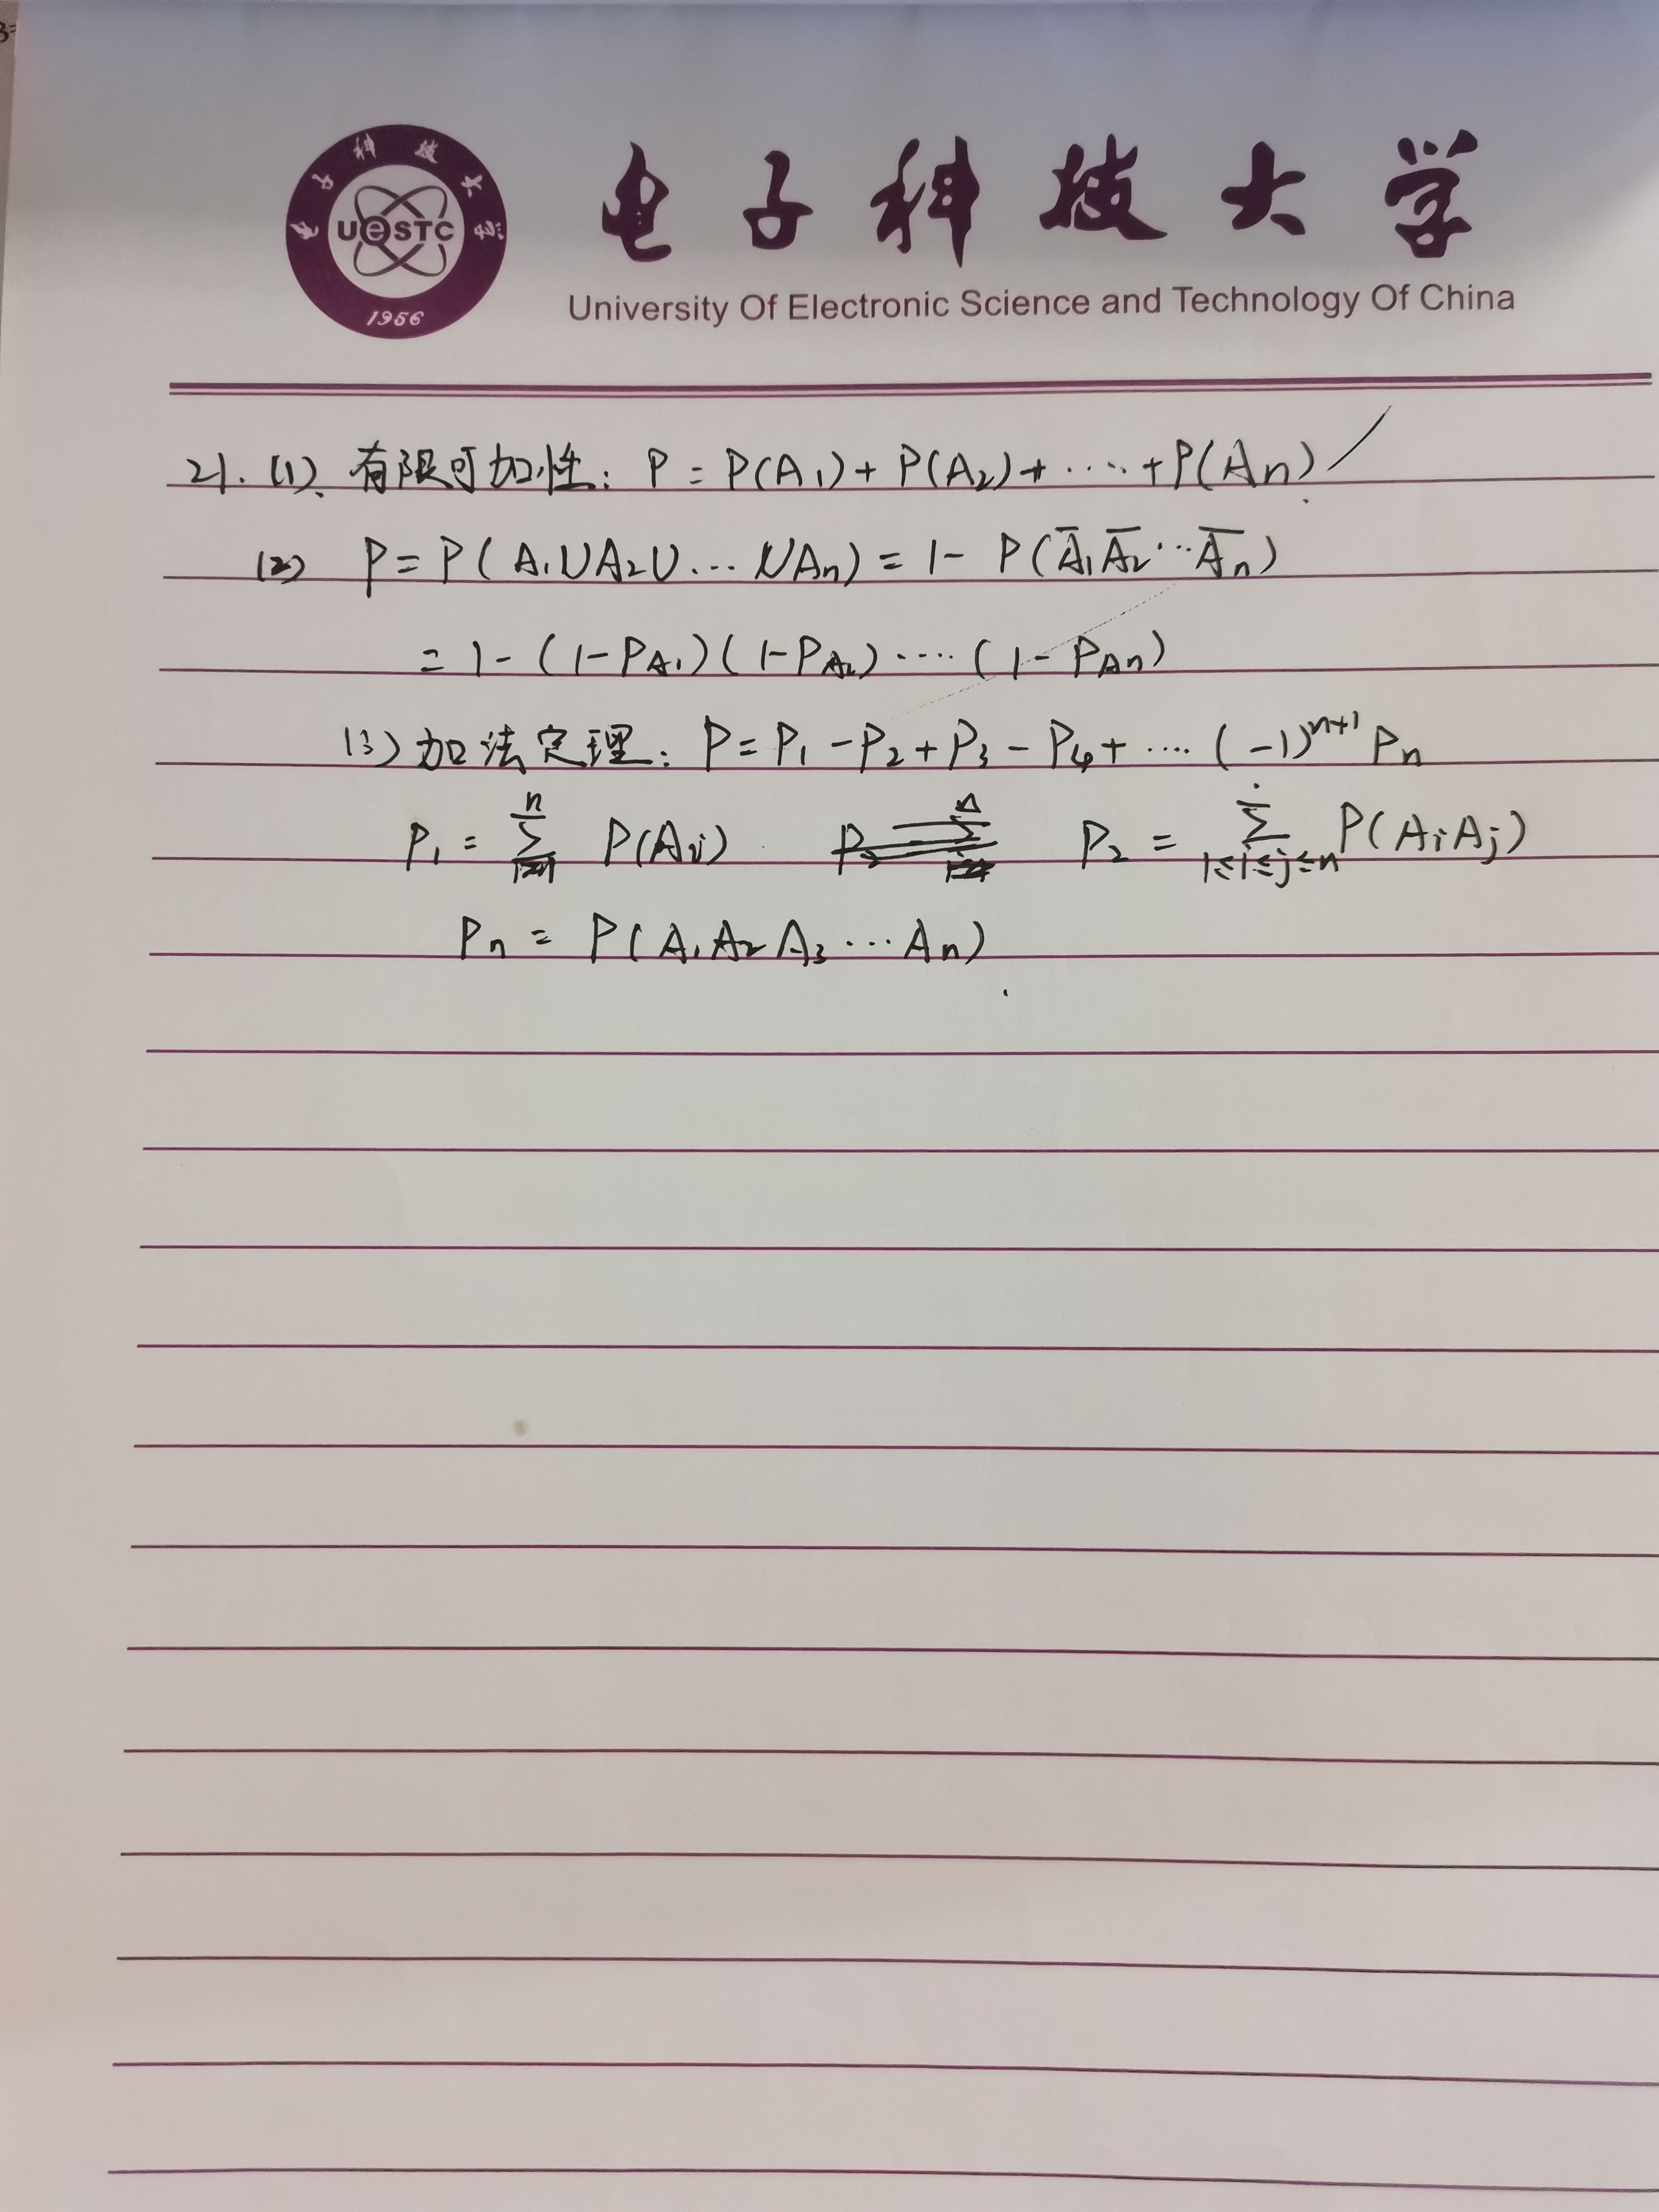 电子科技大学
UeSTC
1956
电子科技大学
University Of Electronic Science and Technology Of China
21. (1). 有限可加性: P = P(A₁) + P(A₂) + ····· + P(An)
(2) P = P(A₁UA₂U...UAn) = 1 - P(A̅₁A̅₂···A̅n)
= 1 - (1-PA₁)(1-PA₂)····(1-PAn)
(3) 加法定理: P = P₁ - P₂ + P₃ - P₄ + ···· (-1)ⁿ⁺¹ Pn
P₁ = ∑ⁿᵢ₌₁ P(Ai) P₂ = ∑1≤i≤j≤n P(AiAj)
Pn = P(A₁A₂A₃···An)